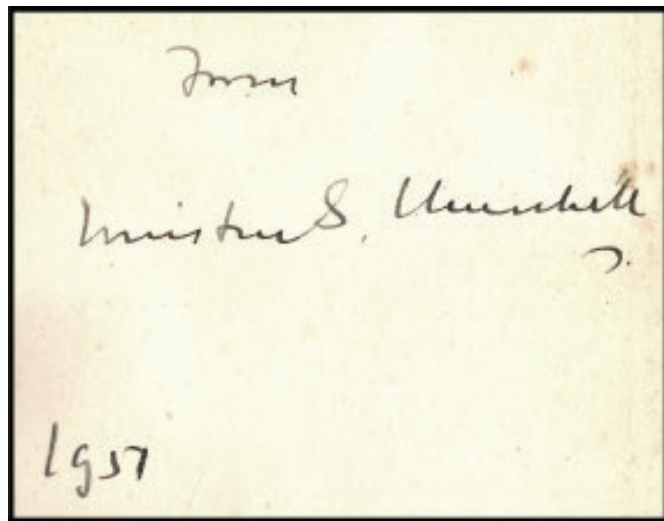 from
Winston S. Churchill
1951